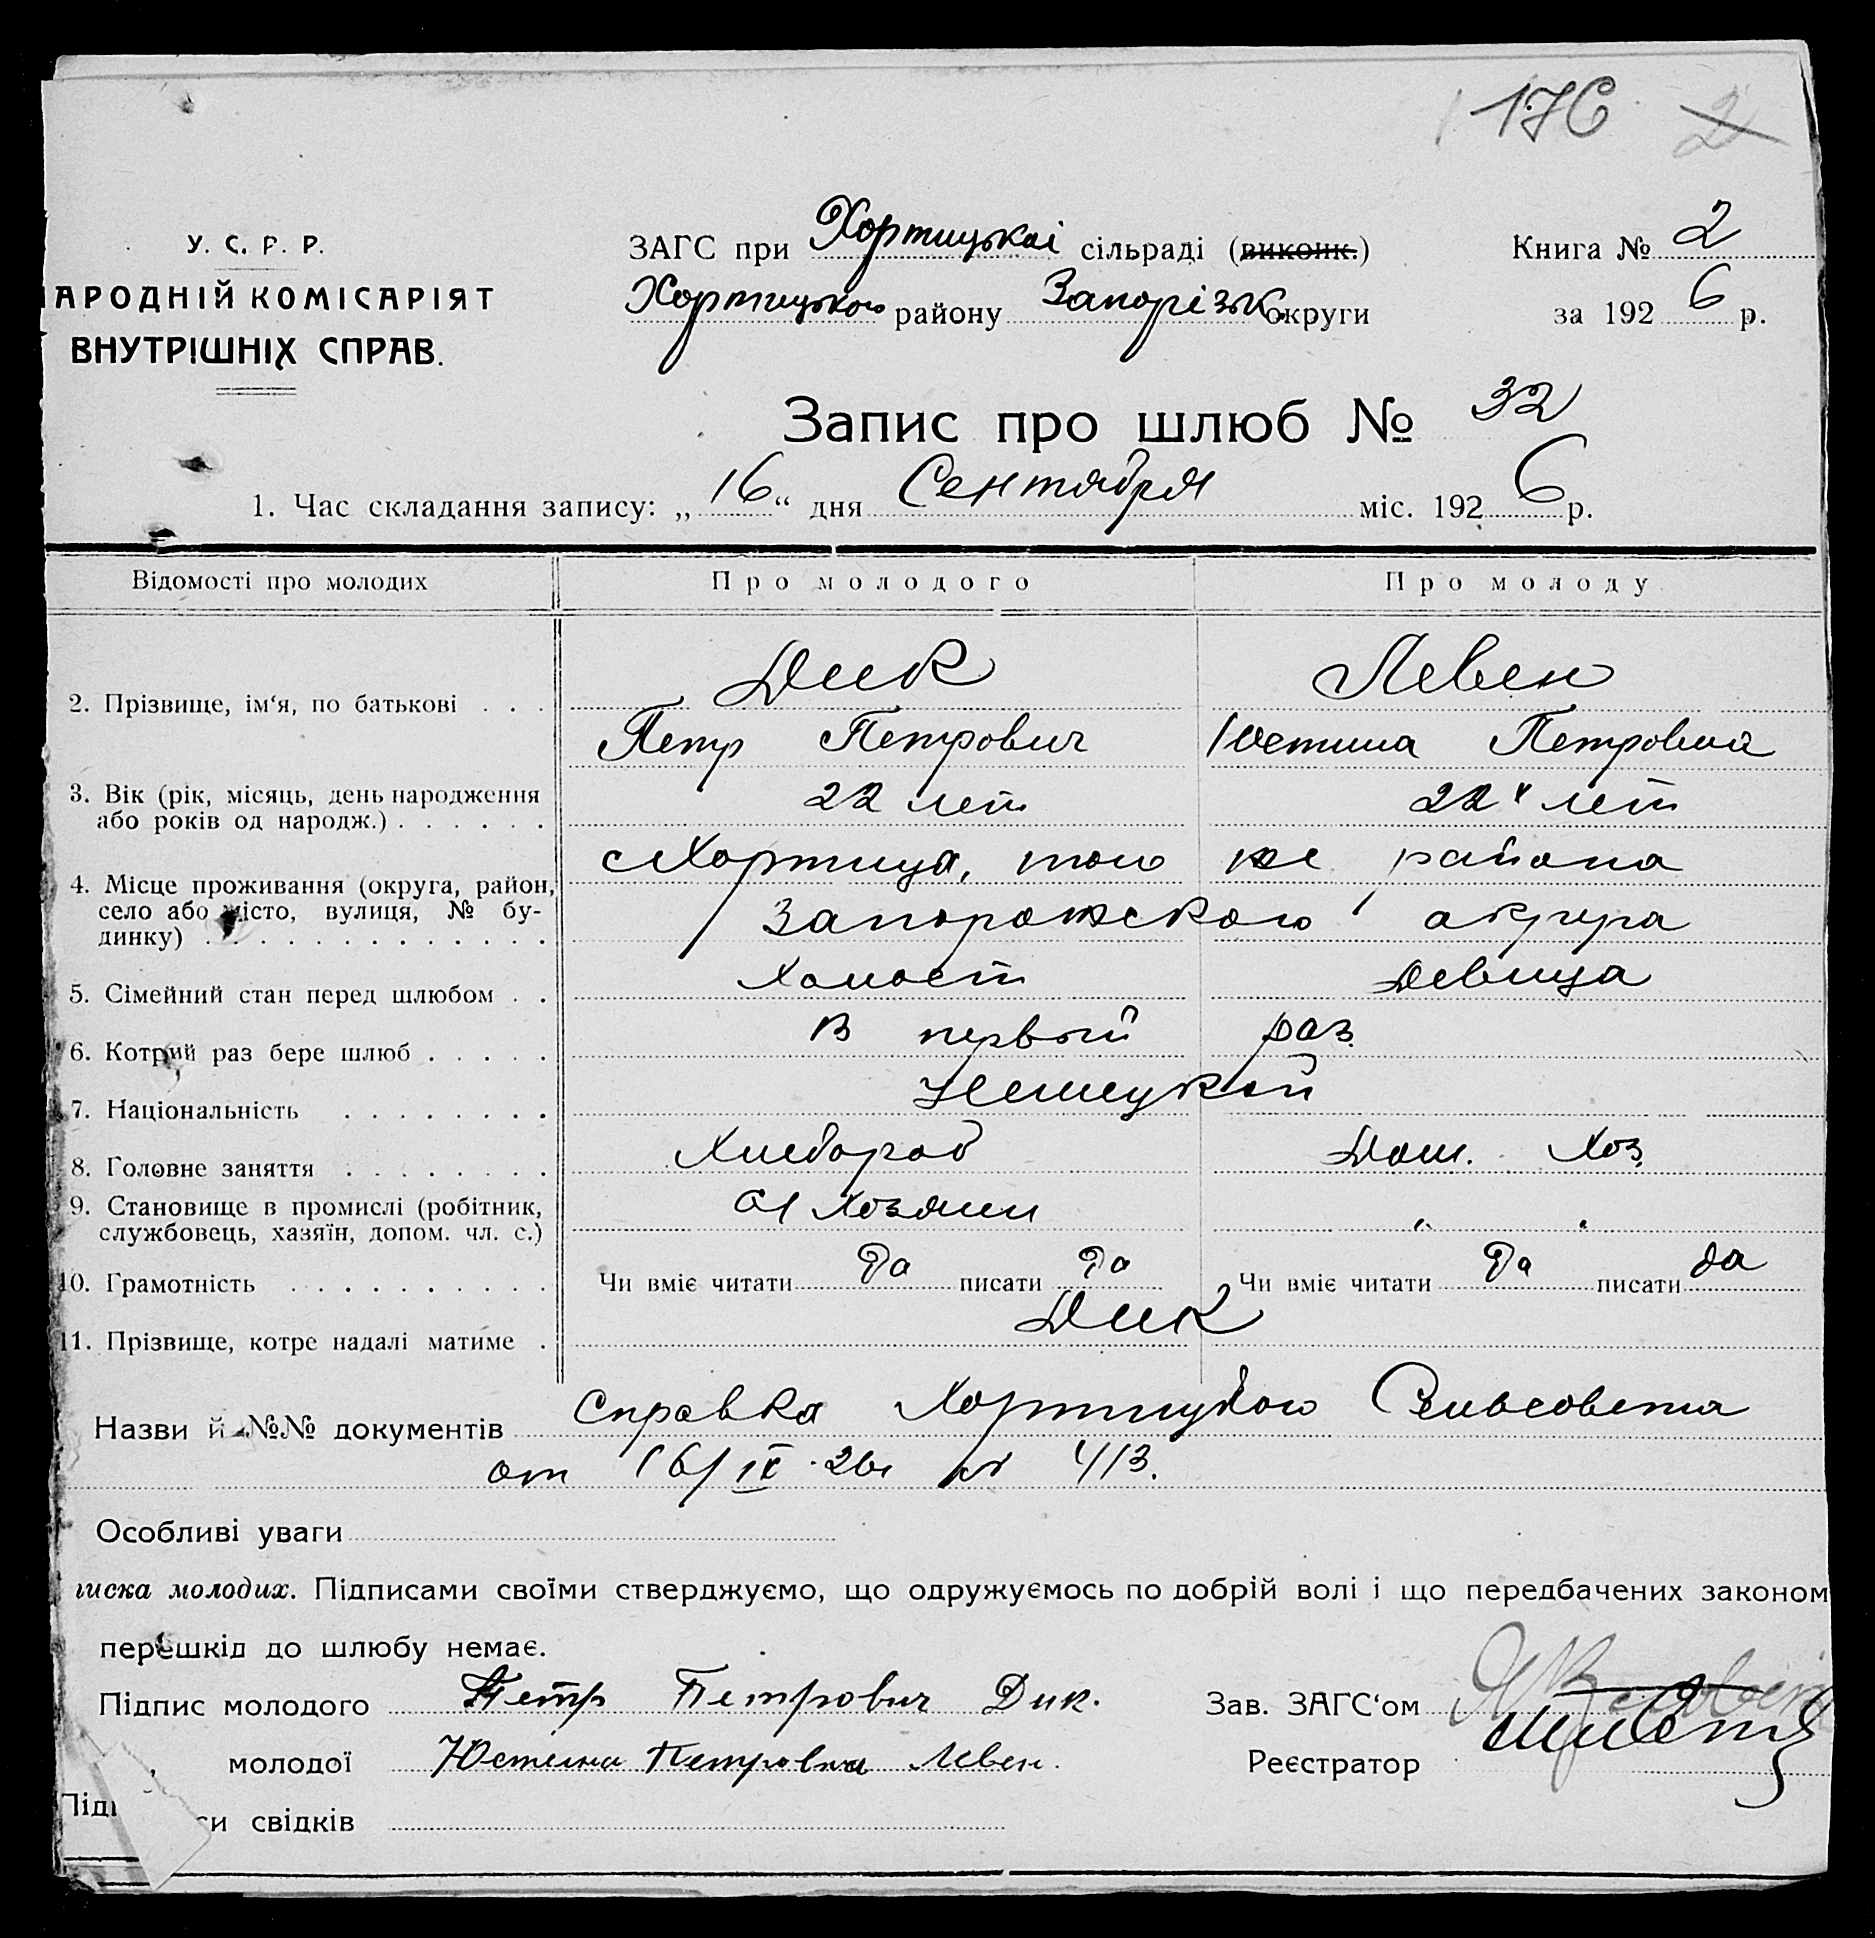 176 2
У. С. Р. Р.
АРОДНІЙ КОМІСАРІЯТ
ВНУТРІШНІХ СПРАВ.
ЗАГС при Хортицької сільраді (виконк.) Книга № 2
Хортицького району Запорізьк. округи за 192 6 р.
Запис про шлюб № 32
1. Час складання запису: „ 16 “ дня Сентября міс. 192 6 р.
Відомості про молодих Про молодого Про молоду
2. Прізвище, ім‘я, по батькові . . . Дик Левен
Петр Петрович Юстина Петровна
3. Вік (рік, місяць, день народження
або років од народж.) . . . . . . 22 лет 22 лет
4. Місце проживання (округа, район,
село або місто, вулиця, № бу-
динку) . . . . . . . . . . . . .
с Хортица, того же района
Запорожского округа
5. Сімейний стан перед шлюбом . . Холост Девица
6. Котрий раз бере шлюб . . . . . В первый раз.
7. Національність . . . . . . . . Немецкой
8. Головне заняття . . . . . . . . Хлебороб Дом. Хоз.
9. Становище в промислі (робітник,
службовець, хазяїн, допом. чл. с.) Хозяин " "
10. Грамотність . . . . . . . . . . Чи вміє читати да писати да Чи вміє читати да писати да
11. Прізвище, котре надалі матиме . Дик
Назви й №№ документів Справка Хортицкого Сельсовета
от 16/IX 26 № 413.
Особливі уваги
иска молодих. Підписами своїми стверджуємо, що одружуємось по добрій волі і що передбачених законом
перешкід до шлюбу немає.
Підпис молодого Петр Петрович Дик. Зав. ЗАГС‘ом
„ молодої Юстина Петровна Левен. Реєстратор
Підписи свідків